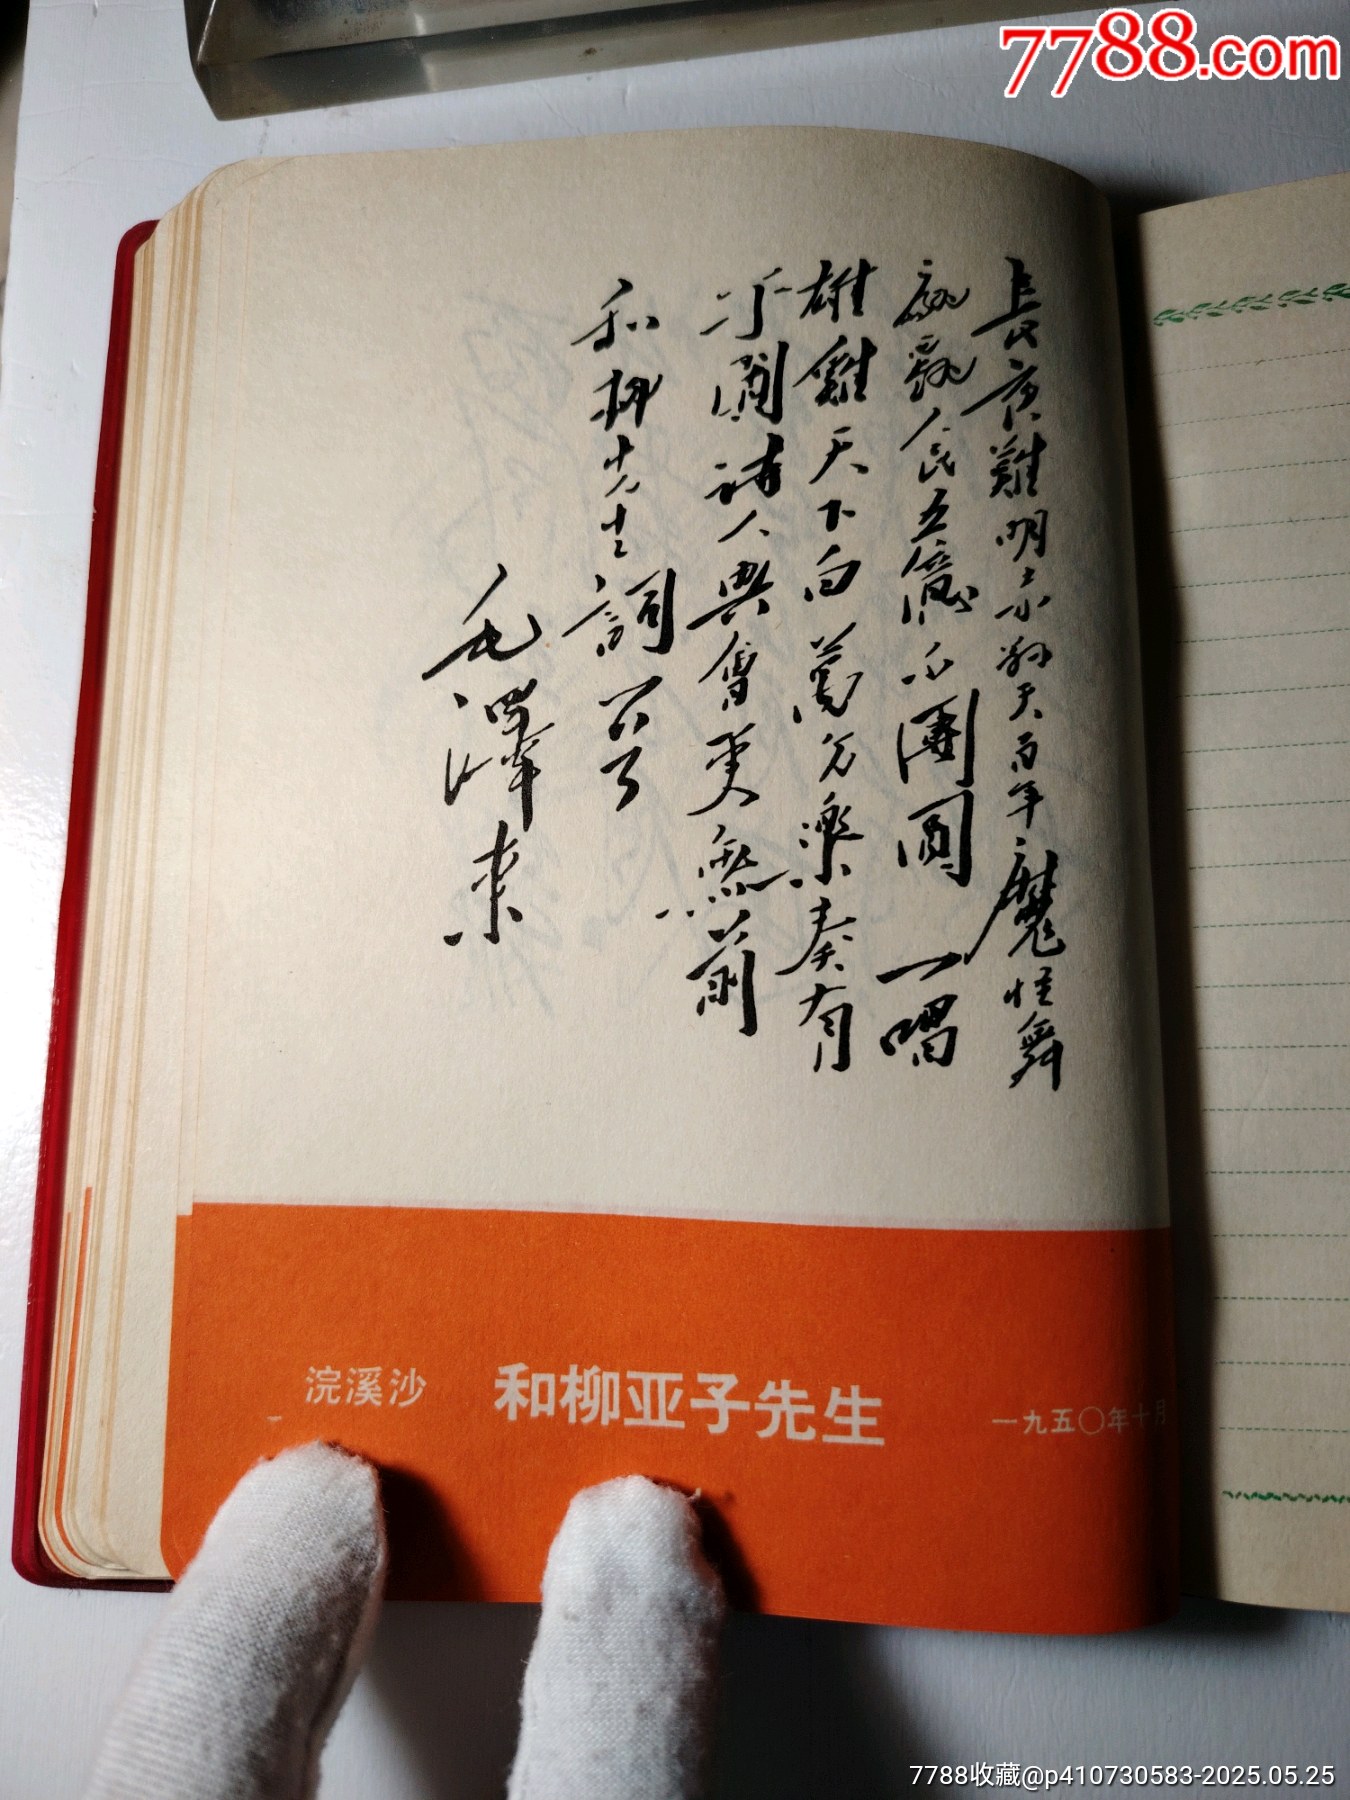 7788.com
長夜難明赤縣天百年魔怪舞
翩躚人民五億不團圓一唱
雄雞天下白萬方樂奏有
于闐詩人興會更無前
和柳先生詞
毛澤東
浣溪沙 和柳亚子先生 一九五〇年十月
7788收藏@p410730583-2025.05.25